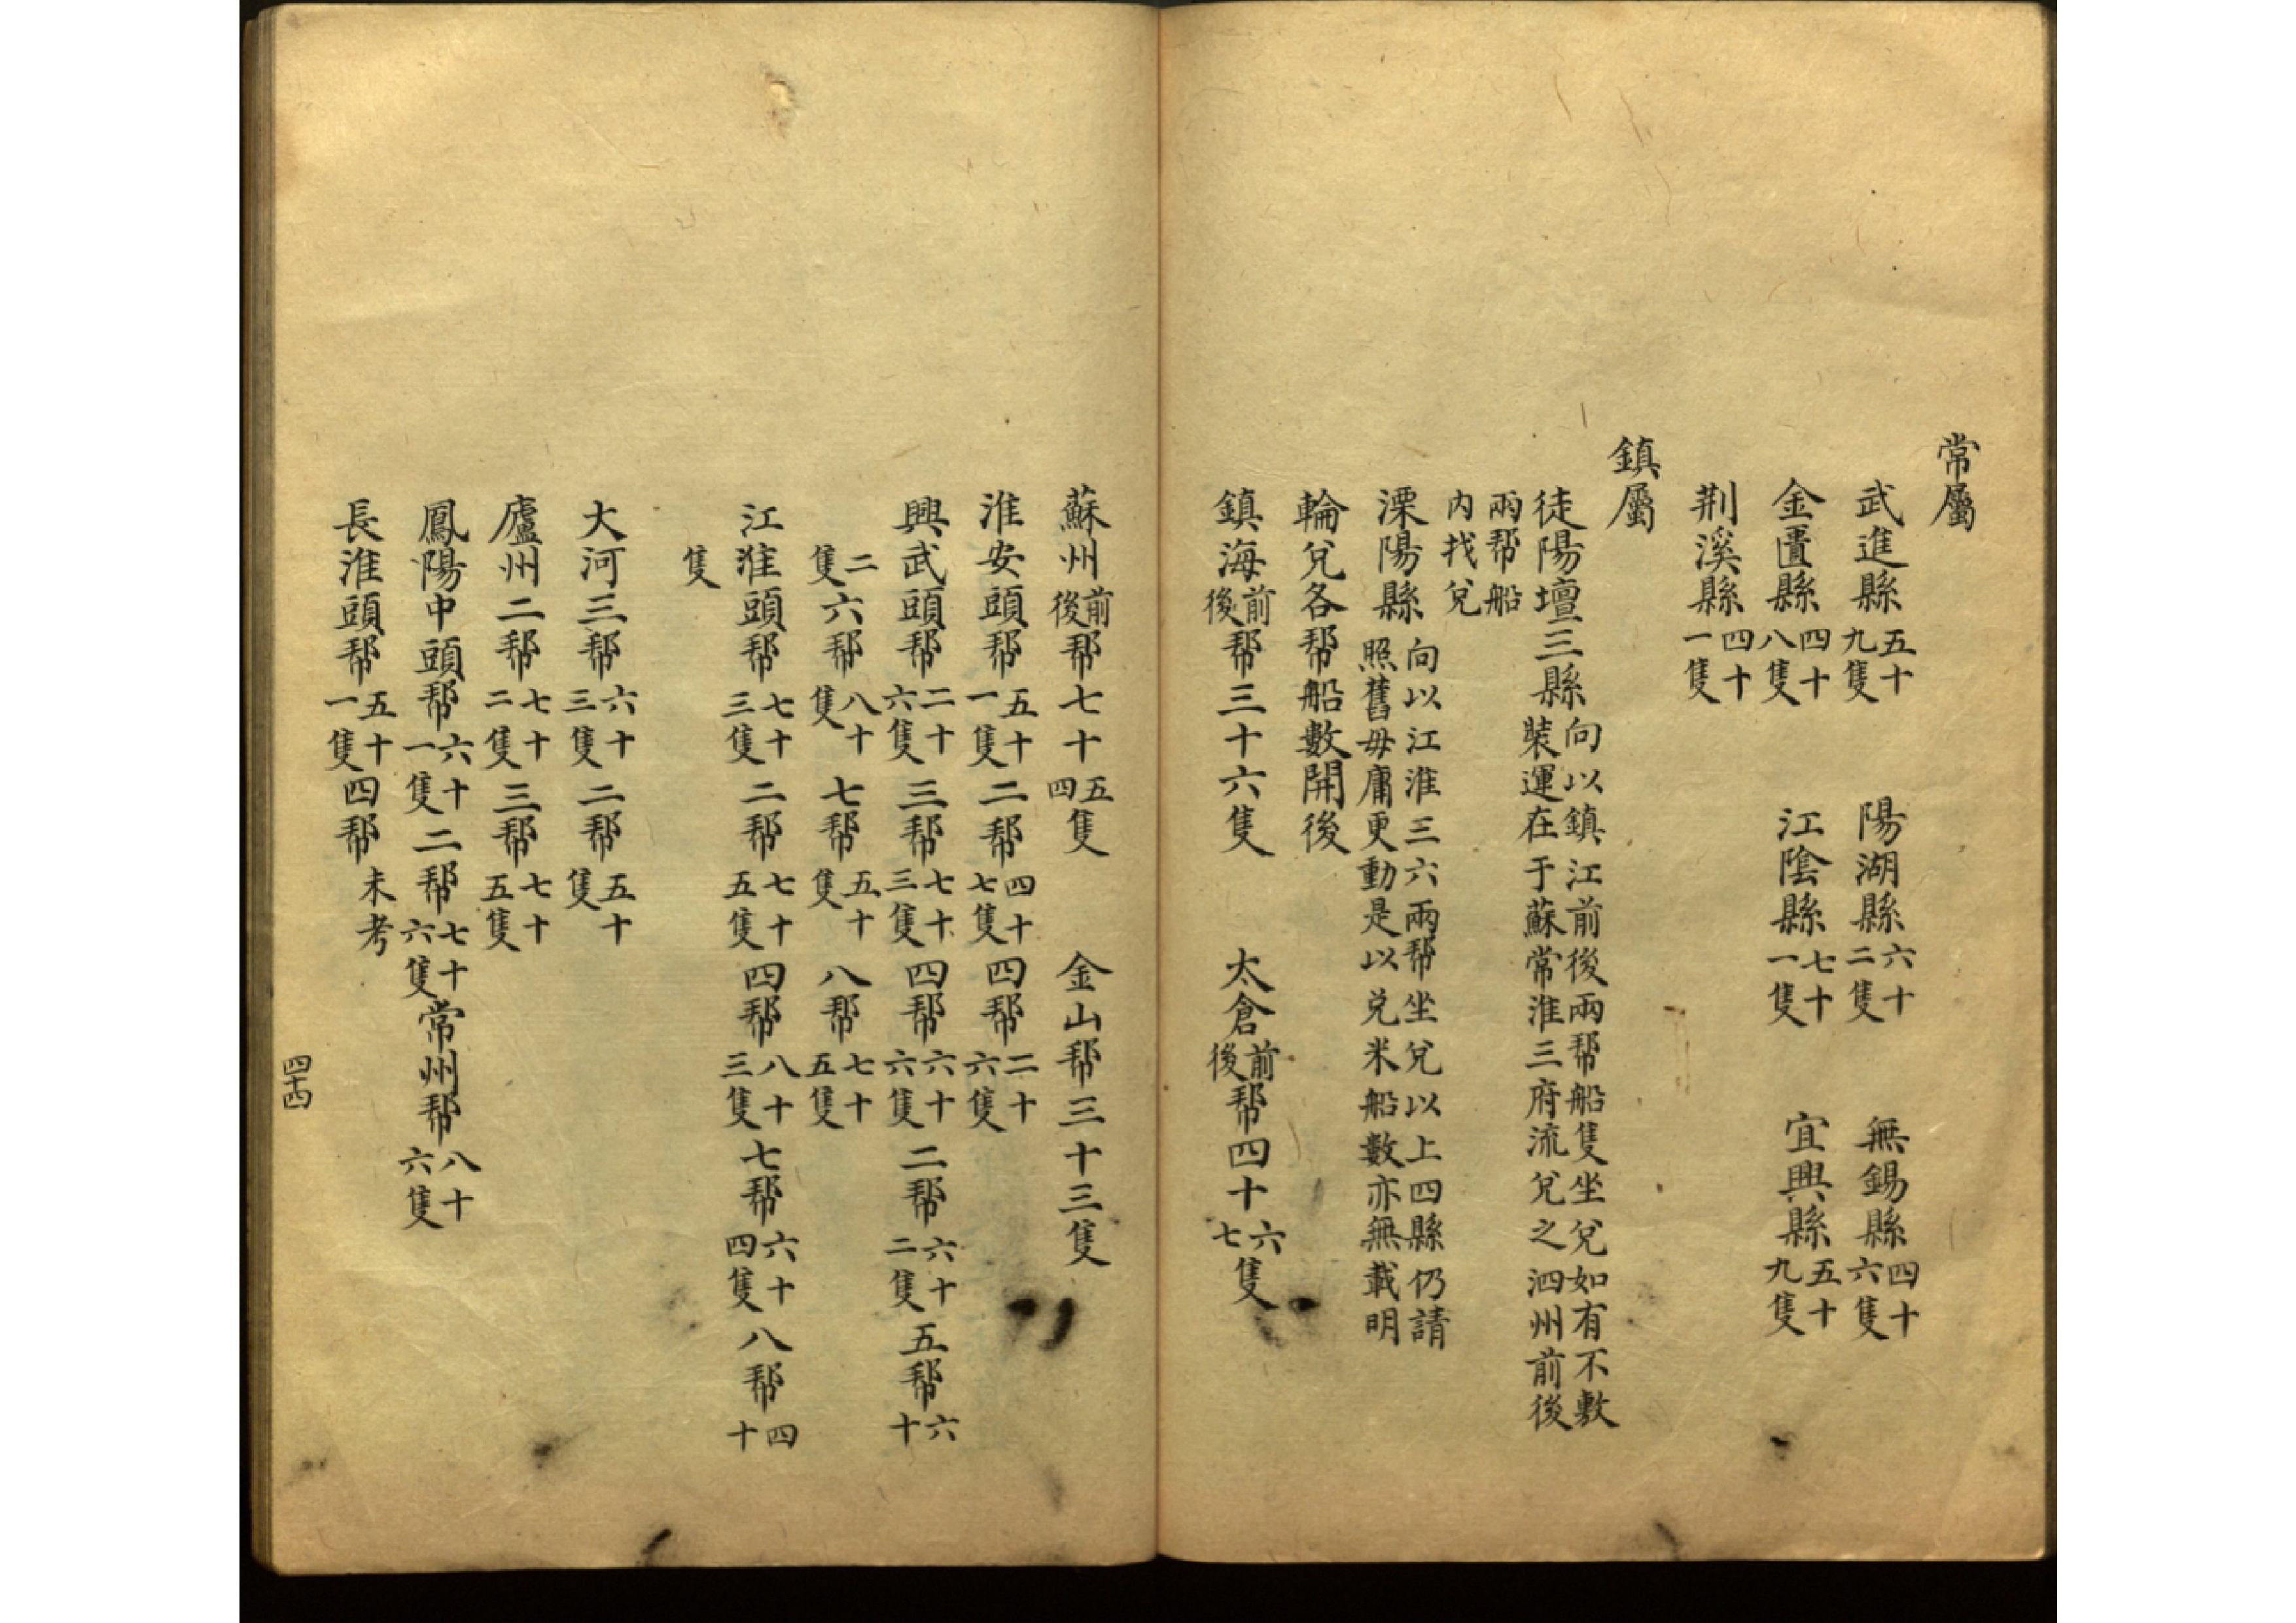 常屬
武進縣五十九隻 陽湖縣六十二隻 無錫縣四十六隻
金匱縣四十八隻 江陰縣七十一隻 宜興縣五十九隻
荆溪縣四十一隻
鎮屬
徒陽壇三縣向以鎮江前後兩帮船隻坐兌如有不敷裝運在于蘇常淮三府流兌之泗州前後
兩帮船内找兌
溧陽縣向以江淮三六兩帮坐兌以上四縣仍請照舊毋庸更動是以兌米船數亦無載明
輪兌各帮船數開後
鎮海前後帮三十六隻 太倉前後帮四十六七隻
蘇州前後帮七十五四隻 金山帮三十三隻
淮安頭帮五十一隻 二帮四十七隻 四帮二十六隻
興武頭帮二十六隻 三帮七十三隻 四帮六十六隻 二帮六十二隻 五帮六十
二隻 六帮八十隻 七帮五十隻 八帮七十五隻
江淮頭帮七十三隻 二帮七十五隻 四帮八十三隻 七帮六十四隻 八帮四十
隻
大河三帮六十三隻 二帮五十隻
廬州二帮七十二隻 三帮七十五隻
鳳陽中頭帮六十一隻 二帮七十六隻 常州帮八十六隻
長淮頭帮五十一隻 四帮未考
四十四